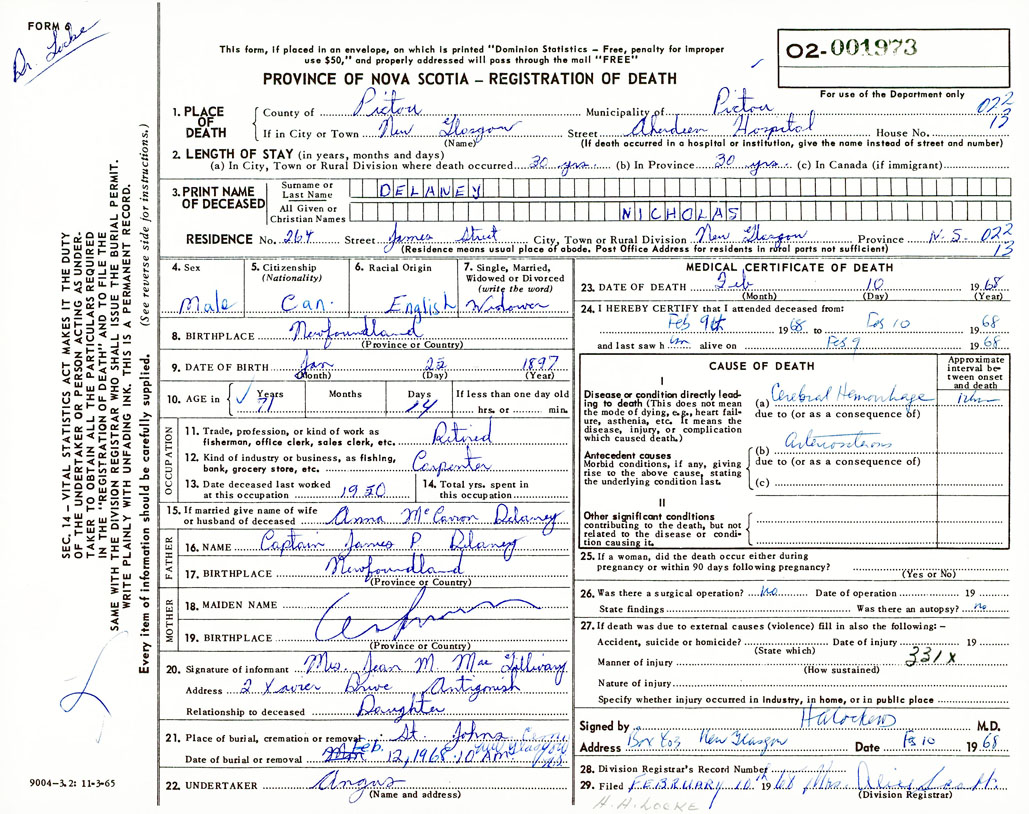 FORM 6
Dr. Locke
This form, if placed in an envelope, on which is printed "Dominion Statistics – Free, penalty for improper
use $50," and properly addressed will pass through the mail "FREE"
PROVINCE OF NOVA SCOTIA – REGISTRATION OF DEATH
02-001973
For use of the Department only
022
13
1. PLACE OF DEATH
County of Pictou Municipality of Pictou
If in City or Town New Glasgow Street Aberdeen Hospital House No.
(Name) (If death occurred in a hospital or institution, give the name instead of street and number)
2. LENGTH OF STAY (in years, months and days)
(a) In City, Town or Rural Division where death occurred 30 yrs. (b) In Province 30 yrs. (c) In Canada (if immigrant)
3. PRINT NAME OF DECEASED
Surname or Last Name DELANEY
All Given or Christian Names NICHOLAS
RESIDENCE No. 264 Street James Street City, Town or Rural Division New Glasgow Province N.S. 022
(Residence means usual place of abode. Post Office Address for residents in rural parts not sufficient) 13
4. Sex
Male
5. Citizenship
(Nationality)
Can.
6. Racial Origin
English
7. Single, Married,
Widowed or Divorced
(write the word)
Widower
8. BIRTHPLACE Newfoundland
(Province or Country)
9. DATE OF BIRTH Jan 25 1897
(Month) (Day) (Year)
10. AGE in Years 71 Months Days 14 If less than one day old
hrs. or min.
OCCUPATION
11. Trade, profession, or kind of work as
fisherman, office clerk, sales clerk, etc. Retired
12. Kind of industry or business, as fishing,
bank, grocery store, etc. Carpenter
13. Date deceased last worked
at this occupation 1950
14. Total yrs. spent in
this occupation
15. If married give name of wife
or husband of deceased Anna McCarron Delaney
FATHER
16. NAME Captain James P Delaney
17. BIRTHPLACE Newfoundland
(Province or Country)
MOTHER
18. MAIDEN NAME
19. BIRTHPLACE
(Province or Country)
20. Signature of informant Mrs. Jean M. Mac Gillivary
Address 2 Xavier Drive Antigonish
Relationship to deceased Daughter
21. Place of burial, cremation or removal St. Johns
Date of burial or removal Feb. 12, 1968
22. UNDERTAKER Angus
(Name and address)
MEDICAL CERTIFICATE OF DEATH
23. DATE OF DEATH Feb 10 1968
(Month) (Day) (Year)
24. I HEREBY CERTIFY that I attended deceased from:
Feb 9th 1968 to Feb 10 1968
and last saw h im alive on Feb 9 1968
CAUSE OF DEATH
Approximate
interval be-
tween onset
and death
I
Disease or condition directly lead-
ing to death (This does not mean
the mode of dying, e.g., heart fail-
ure, asthenia, etc. It means the
disease, injury, or complication
which caused death.)
(a) Cerebral Hemorrhage
due to (or as a consequence of)
Antecedent causes
Morbid conditions, if any, giving
rise to the above cause, stating
the underlying condition last.
(b)
due to (or as a consequence of)
(c)
II
Other significant conditions
contributing to the death, but not
related to the disease or condi-
tion causing it.
25. If a woman, did the death occur either during
pregnancy or within 90 days following pregnancy?
(Yes or No)
26. Was there a surgical operation? No Date of operation 19
State findings Was there an autopsy? no
27. If death was due to external causes (violence) fill in also the following: –
Accident, suicide or homicide? Date of injury 19
(State which)
Manner of injury 331X
(How sustained)
Nature of injury
Specify whether injury occurred in Industry, in home, or in public place
Signed by M.D.
Address Box New Glasgow Date Feb 10 1968
28. Division Registrar's Record Number
29. Filed FEBRUARY 10th 1968 Mrs.
(Division Registrar)
H. H. LOCKE
SEC. 14 – VITAL STATISTICS ACT MAKES IT THE DUTY
OF THE UNDERTAKER OR PERSON ACTING AS UNDER-
TAKER TO OBTAIN ALL THE PARTICULARS REQUIRED
IN THE "REGISTRATION OF DEATH" AND TO FILE THE
SAME WITH THE DIVISION REGISTRAR WHO SHALL ISSUE THE BURIAL PERMIT.
WRITE PLAINLY WITH UNFADING INK. THIS IS A PERMANENT RECORD.
Every item of information should be carefully supplied. (See reverse side for instructions.)
9004–3.2: 11-3-65